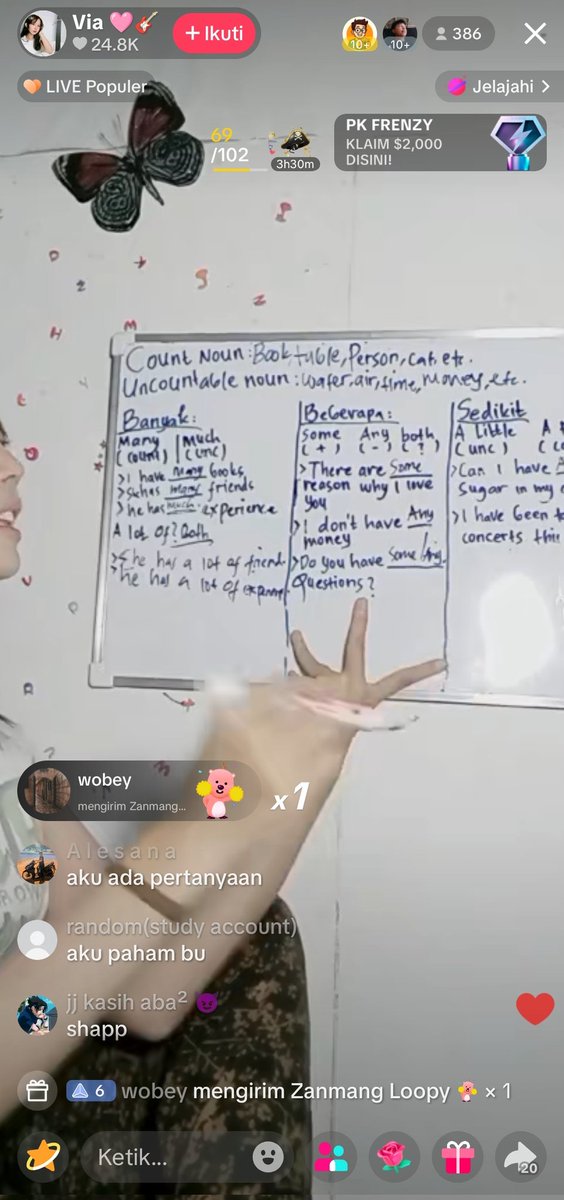 Via
24.8K
+ Ikuti
10+
10+
386
LIVE Populer
Jelajahi
69
/102
3h30m
PK FRENZY
KLAIM $2,000
DISINI!
Count Noun: Book, table, Person, cat, etc.
Uncountable noun: water, air, time, money, etc.
Banyak:
Many | Much
(count) (unc)
> I have many books
many friends
> he has much experience
A lot of? Both
> She has a lot of friend
> he has a lot of
Beberapa:
Some Any both
(+) (-) (?)
> There are Some
reason why I love
you
> I don't have Any
money
> Do you have Some/Any
Questions?
Sedikit
A little A
(unc)
> Can I have A
Sugar in my
> I have been to
concerts this
wobey
mengirim Zanmang...
x1
Alesana
aku ada pertanyaan
random(study account)
aku paham bu
jj kasih aba²
shapp
6 wobey mengirim Zanmang Loopy × 1
Ketik...
20